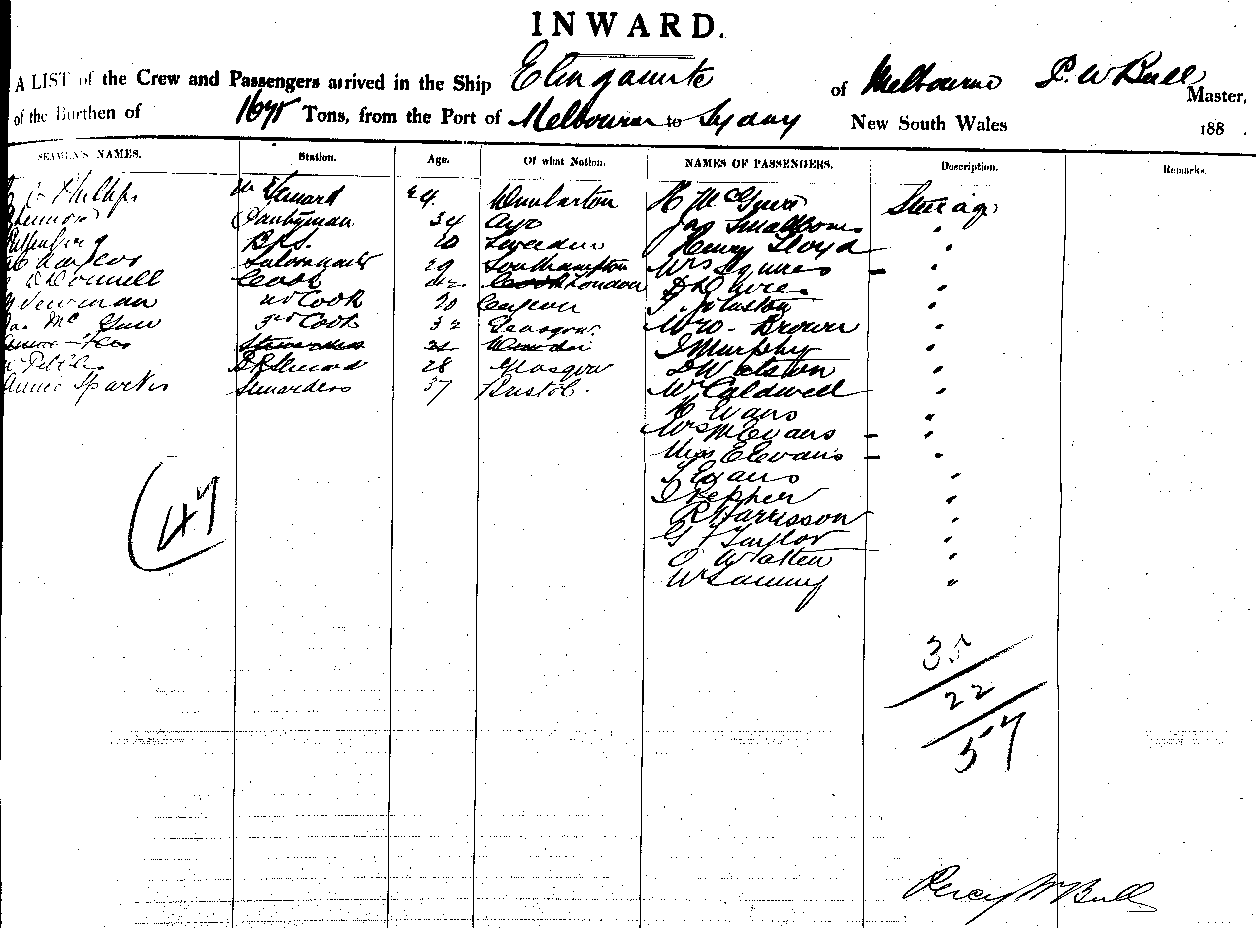 INWARD.
A LIST of the Crew and Passengers arrived in the Ship Elingamite of Melbourne P. W Bull Master,
of the Burthen of 1675 Tons, from the Port of Melbourne to Sydney New South Wales 188 .
SEAMEN'S NAMES. Station. Age. Of what Nation. NAMES OF PASSENGERS. Description. Remarks.
Phillips Steward 24 Dumbarton H McGuire Steerage
Pantryman 34 Ayr Jas Smallbone "
B.R.S. 20 Sweden Henry Lloyd "
29 Southampton Mrs Squires - "
O'Donnell Cook Cook London D Davies "
Newman 2nd Cook 20 Ceylon J Johnston "
Mc 3rd Cook 32 Glasgow Wm Brown "
Stewardess J Murphy "
Petele B.R. Steward 28 Glasgow D Watson "
Annie Sparks Stewardess 37 Bristol W Caldwell "
H Evans "
Mrs M Evans - "
Miss E Evans - "
J Evans "
J Kepper "
R Harrisson "
G Taylor "
C Watten "
W "
(47
35
22
57
Percy W Bull